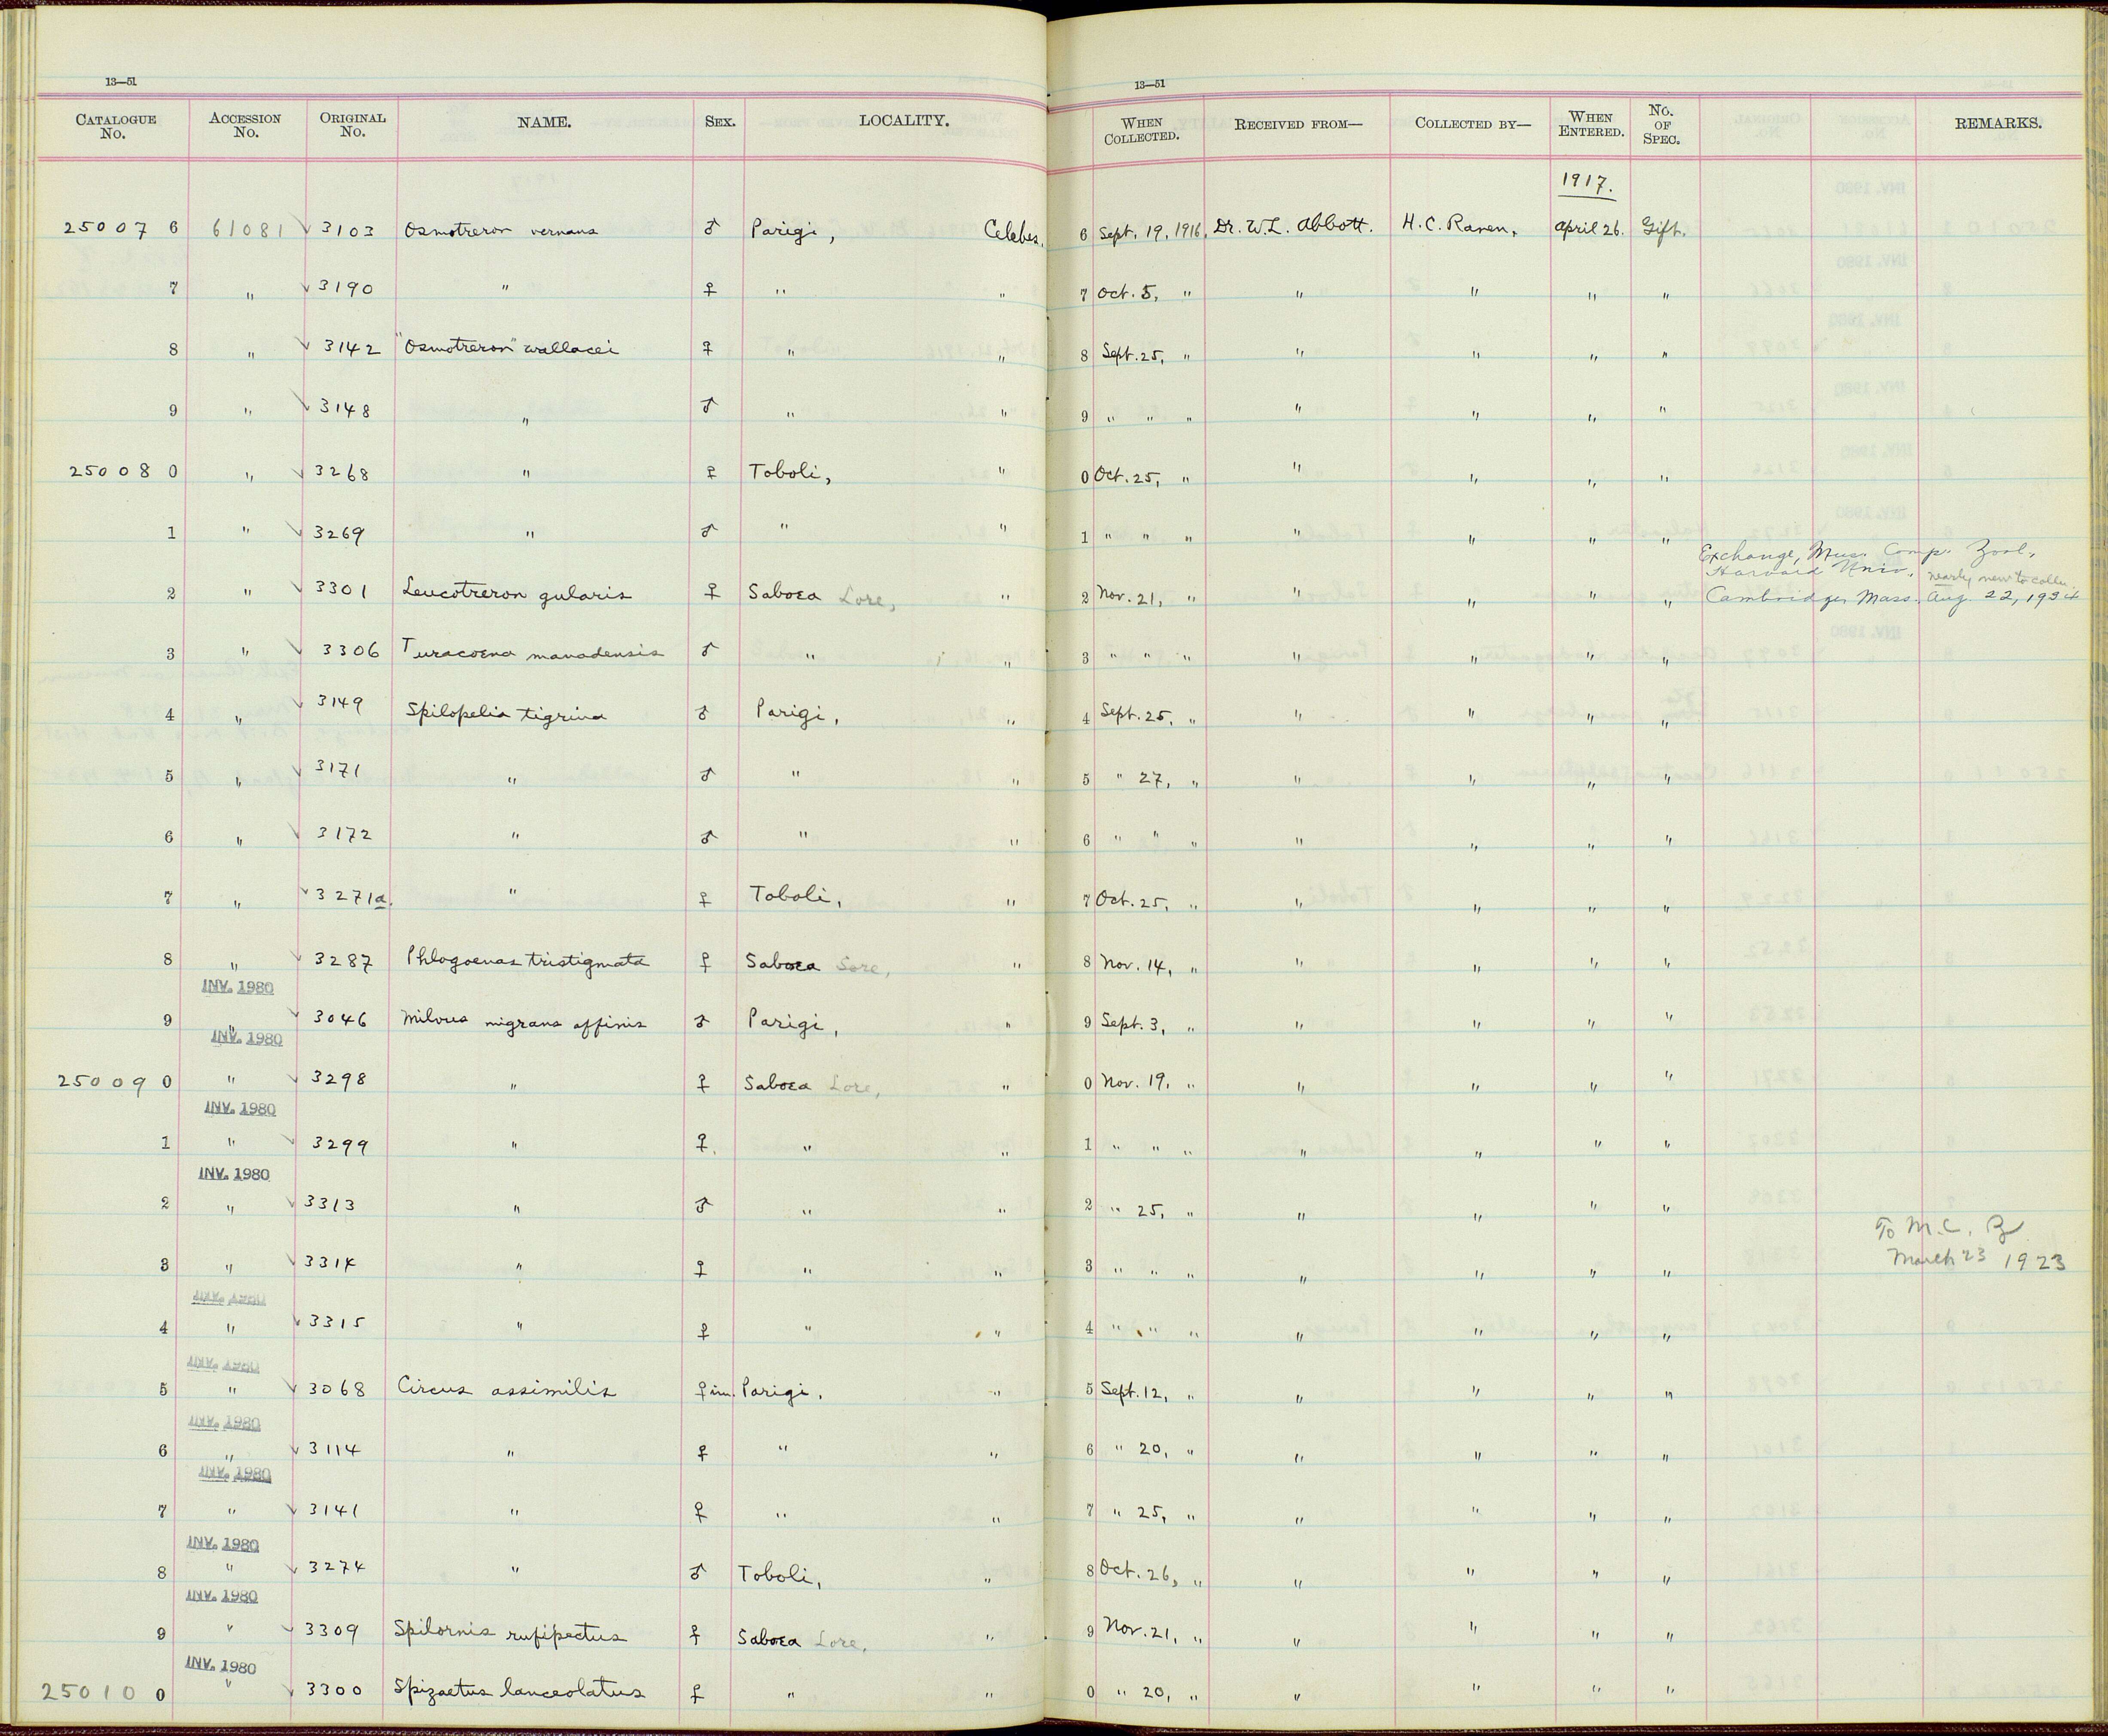 13—51
13—51
CATALOGUE No. ACCESSION No. ORIGINAL No. NAME. SEX. LOCALITY. WHEN COLLECTED. RECEIVED FROM— COLLECTED BY— WHEN ENTERED. No. OF SPEC. REMARKS.
1917.
250076 61081 3103 Osmotreron vernans ♂ Parigi, Celebes. 6 Sept. 19, 1916, Dr. W.L. Abbott. H.C. Raven, April 26. Gift.
7 " 3190 " ♀ " " 7 Oct. 5, " " " " "
8 " 3142 "Osmotreron" wallacei ♀ " " 8 Sept. 25, " " " " "
9 " 3148 " ♂ " " 9 " " " " " " "
250080 " 3268 " ♀ Toboli, " 0 Oct. 25, " " " " "
1 " 3269 " ♂ " " 1 " " " " " " "
Exchange, Mus. Comp. Zool.,
Harvard Univ., nearly new to colln.
2 " 3301 Leucotreron gularis ♀ Saboea Lore, " 2 Nov. 21, " " " " " Cambridge, Mass. Aug. 22, 1934
3 " 3306 Turacoena manadensis ♂ " " 3 " " " " " " "
4 " 3149 Spilopelia tigrina ♂ Parigi, " 4 Sept. 25, " " " " "
5 " 3171 " ♂ " " 5 " 27, " " " " "
6 " 3172 " ♂ " " 6 " " " " " " "
7 " 3271a. " ♀ Toboli, " 7 Oct. 25, " " " " "
8 " 3287 Phlogoenas tristigmata ♀ Saboea Lore, " 8 Nov. 14, " " " " "
INV. 1980
9 " 3046 Milvus migrans affinis ♂ Parigi, " 9 Sept. 3, " " " " "
INV. 1980
250090 " 3298 " ♀ Saboea Lore, " 0 Nov. 19, " " " " "
INV. 1980
1 " 3299 " ♀. " " 1 " " " " " " "
INV. 1980
2 " 3313 " ♂ " " 2 " 25, " " " " "
To M.C.Z.
3 " 3314 " ♀ " " 3 " " " " " " " March 23 1923
INV. 1980
4 " 3315 " ♀ " " 4 " " " " " " "
INV. 1980
5 " 3068 Circus assimilis ♀ im. Parigi. " 5 Sept. 12, " " " " "
INV. 1980
6 " 3114 " ♀ " " 6 " 20, " " " " "
INV. 1980
7 " 3141 " ♀ " " 7 " 25, " " " " "
INV. 1980
8 " 3274 " ♂ Toboli, " 8 Oct. 26, " " " " "
INV. 1980
9 " 3309 Spilornis rufipectus ♀ Saboea Lore, " 9 Nov. 21, " " " " "
INV. 1980
250100 " 3300 Spizaetus lanceolatus ♀ " " 0 " 20, " " " " "